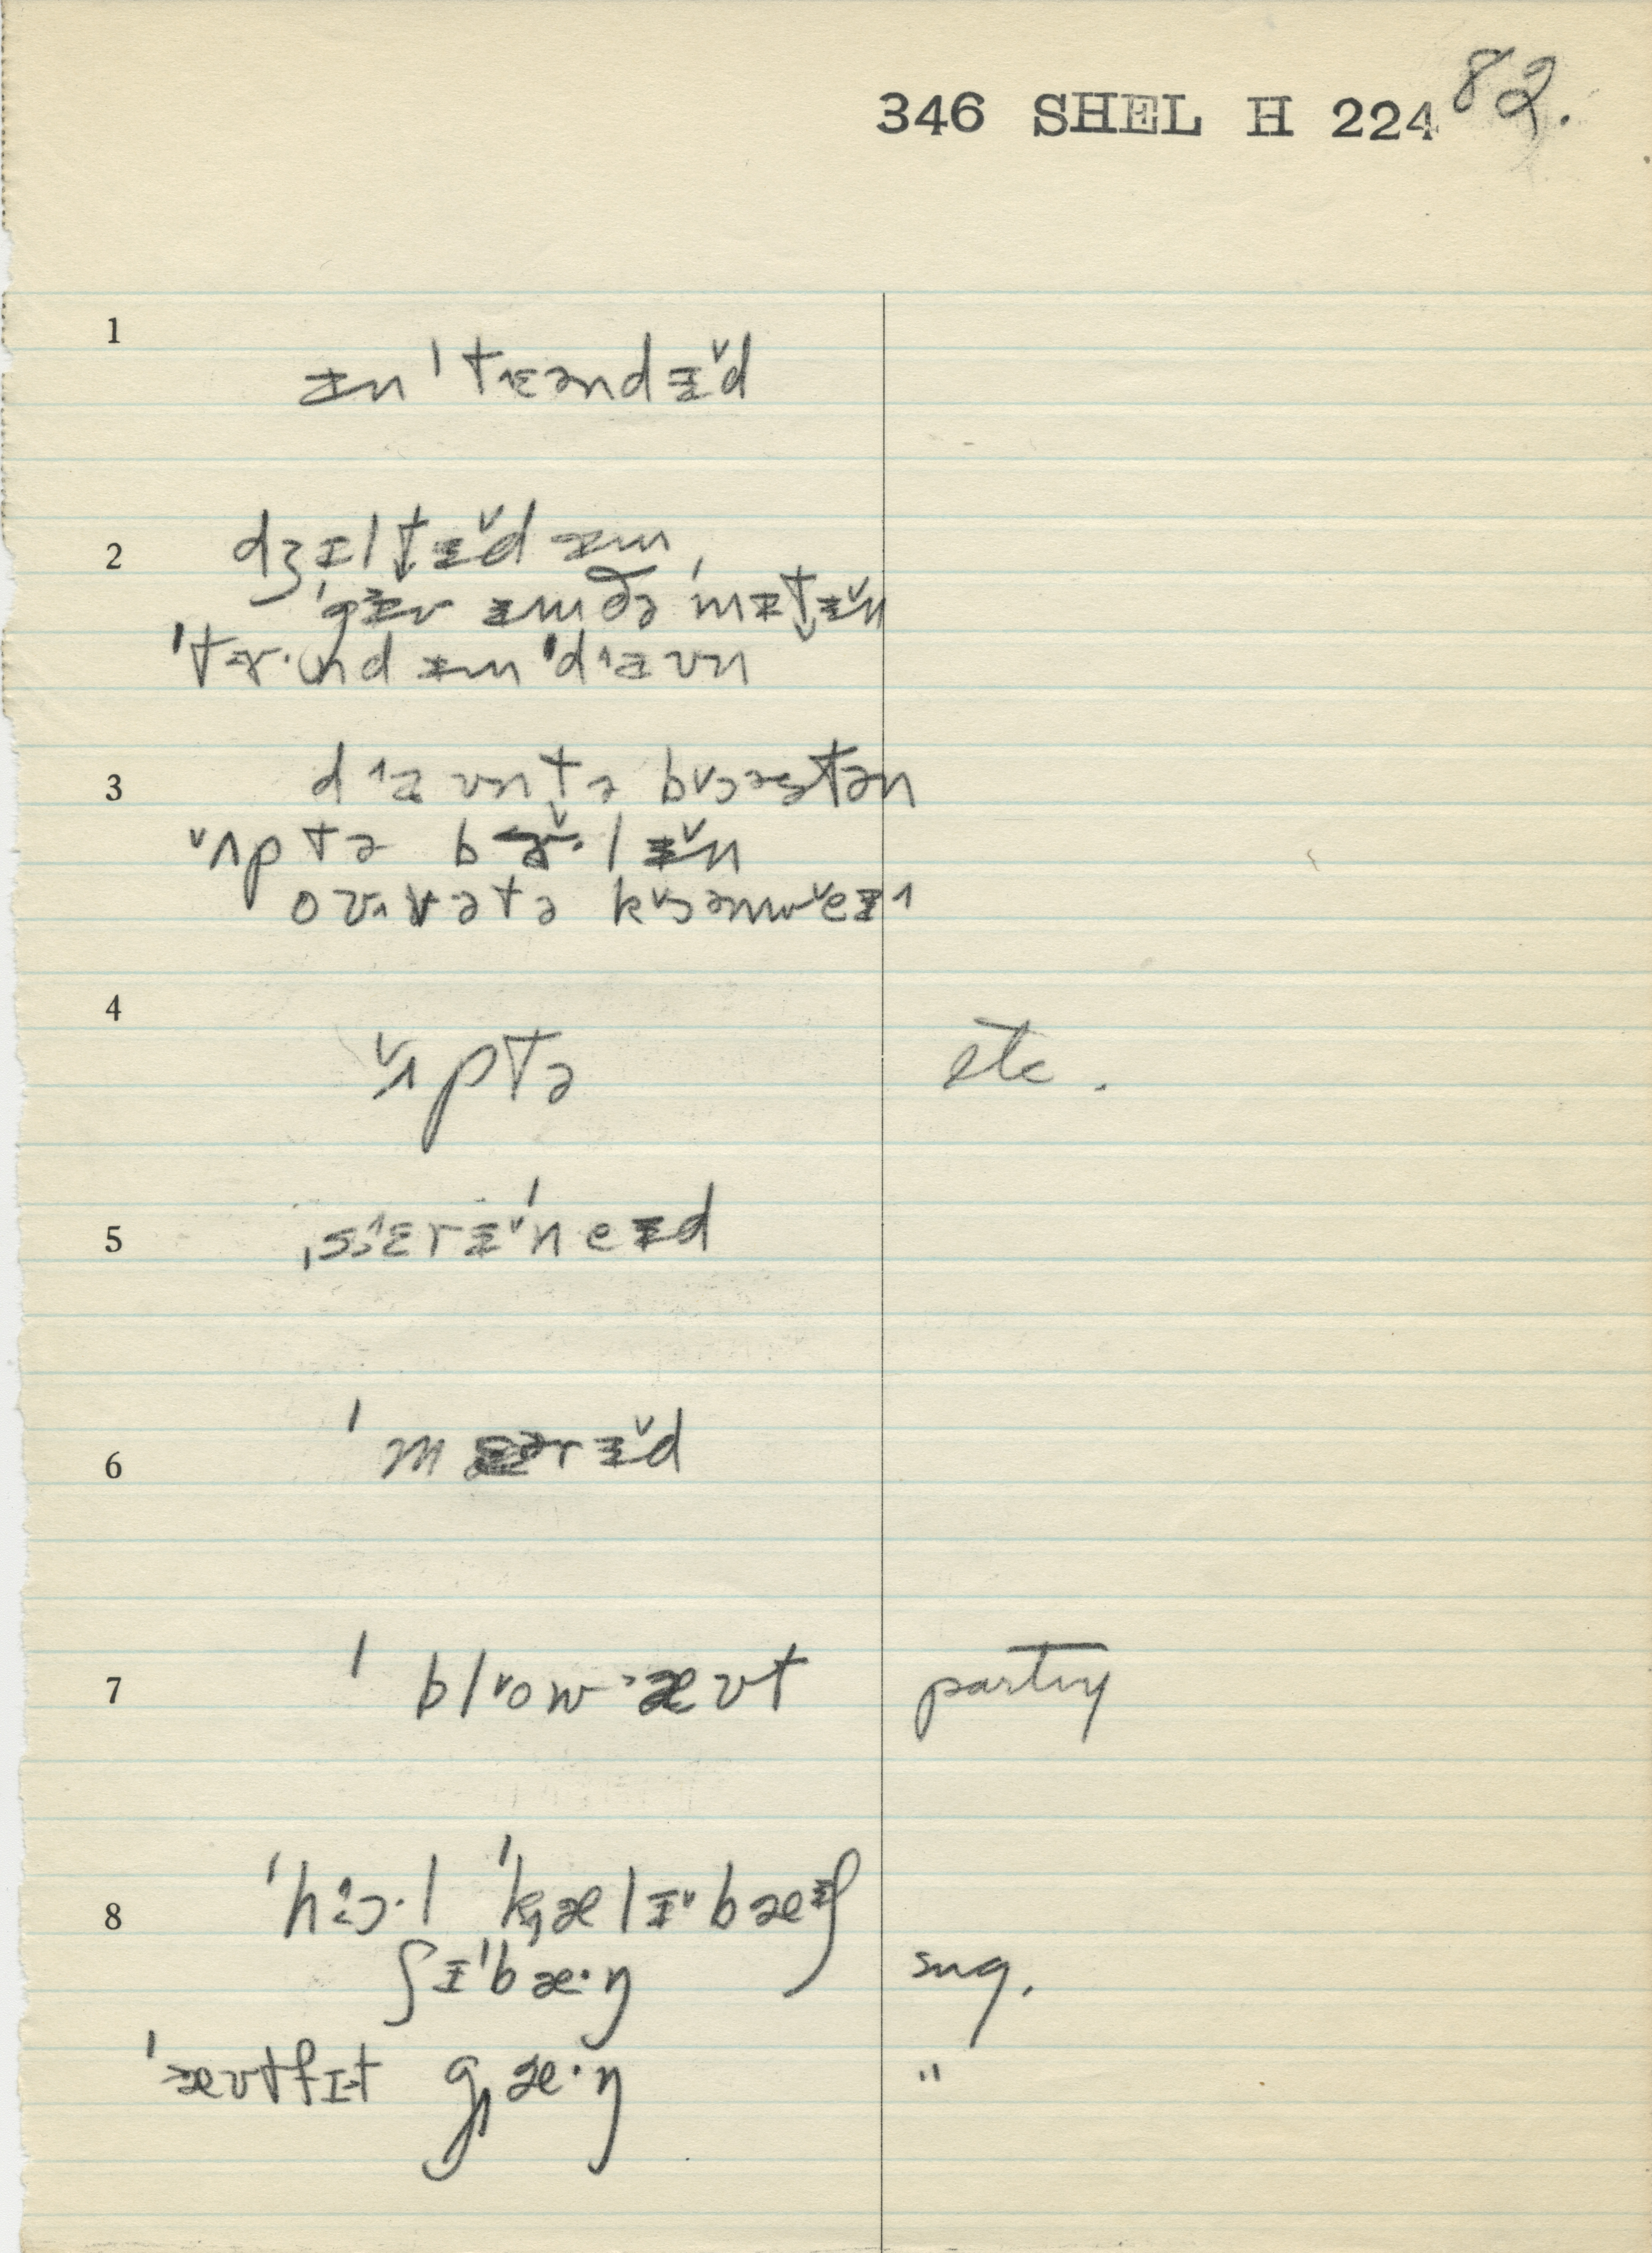 346 SHEL H 224 82.
1 ɪn ˈtɛəndɨ̌d
2 dʒɪltɨ̌d ɪm
ˈgɪv ɪm ðə ˈmɪtɨ̌n
ˈtɤ·nd ɪm ˈdaʊn
3 daʊn tə bɔəstən
ʌp tə bɤ·lɨ̌n
ovə tə kɔənweɪ
4 ʌp tə etc.
5 ˌsɛrɨˈneɪd
6 ˈmɛərɨ̌d
7 ˈblowæʊt party
8 ˈhɔ·l ˈkælɪbæɪʃ
ʃɪˈbæ·ŋ sng.
ˈæʊtfɪt gæ·ŋ "